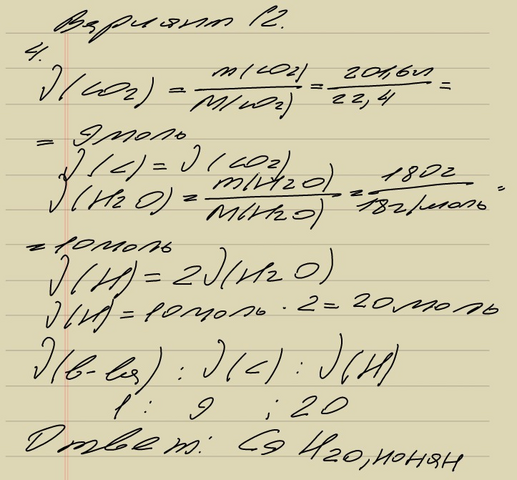 Вариант 12.
4.
ν(CO2) = m(CO2)/M(CO2) = 201,6л/22,4 =
= 9 моль
ν(C) = ν(CO2)
ν(H2O) = m(H2O)/M(H2O) = 180г/18г/моль =
= 10 моль
ν(H) = 2ν(H2O)
ν(H) = 10 моль · 2 = 20 моль
ν(в-ва) : ν(C) : ν(H)
1 : 9 : 20
Ответ: C9H20, нонан